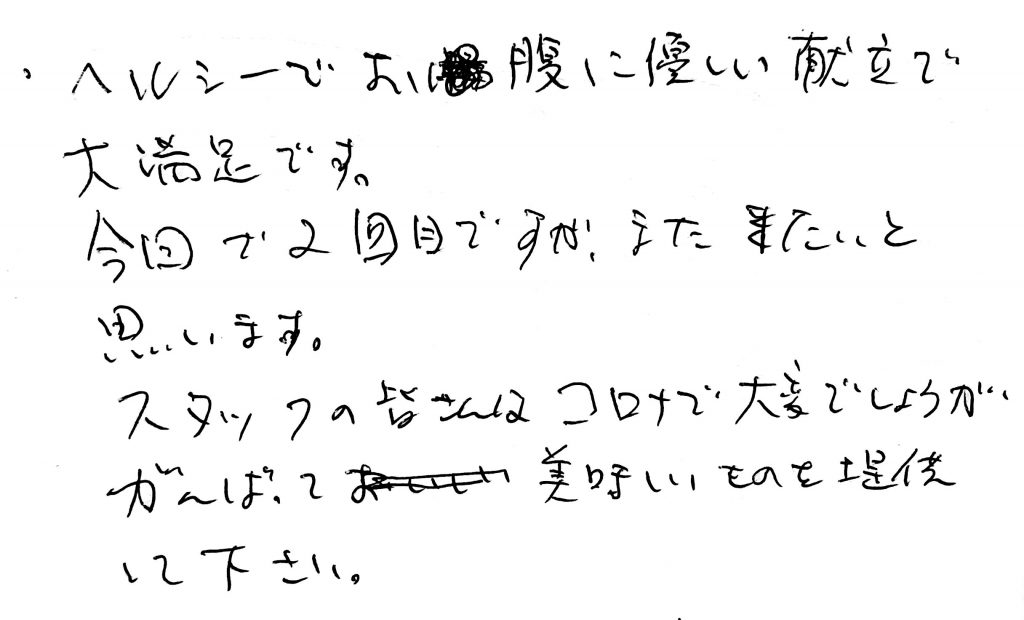 ・ヘルシーでお腹に優しい献立で
大満足です。
今回で2回目ですが、また来たいと
思います。
スタッフの皆さんはコロナで大変でしょうが
がんばって美味しいものを提供
して下さい。